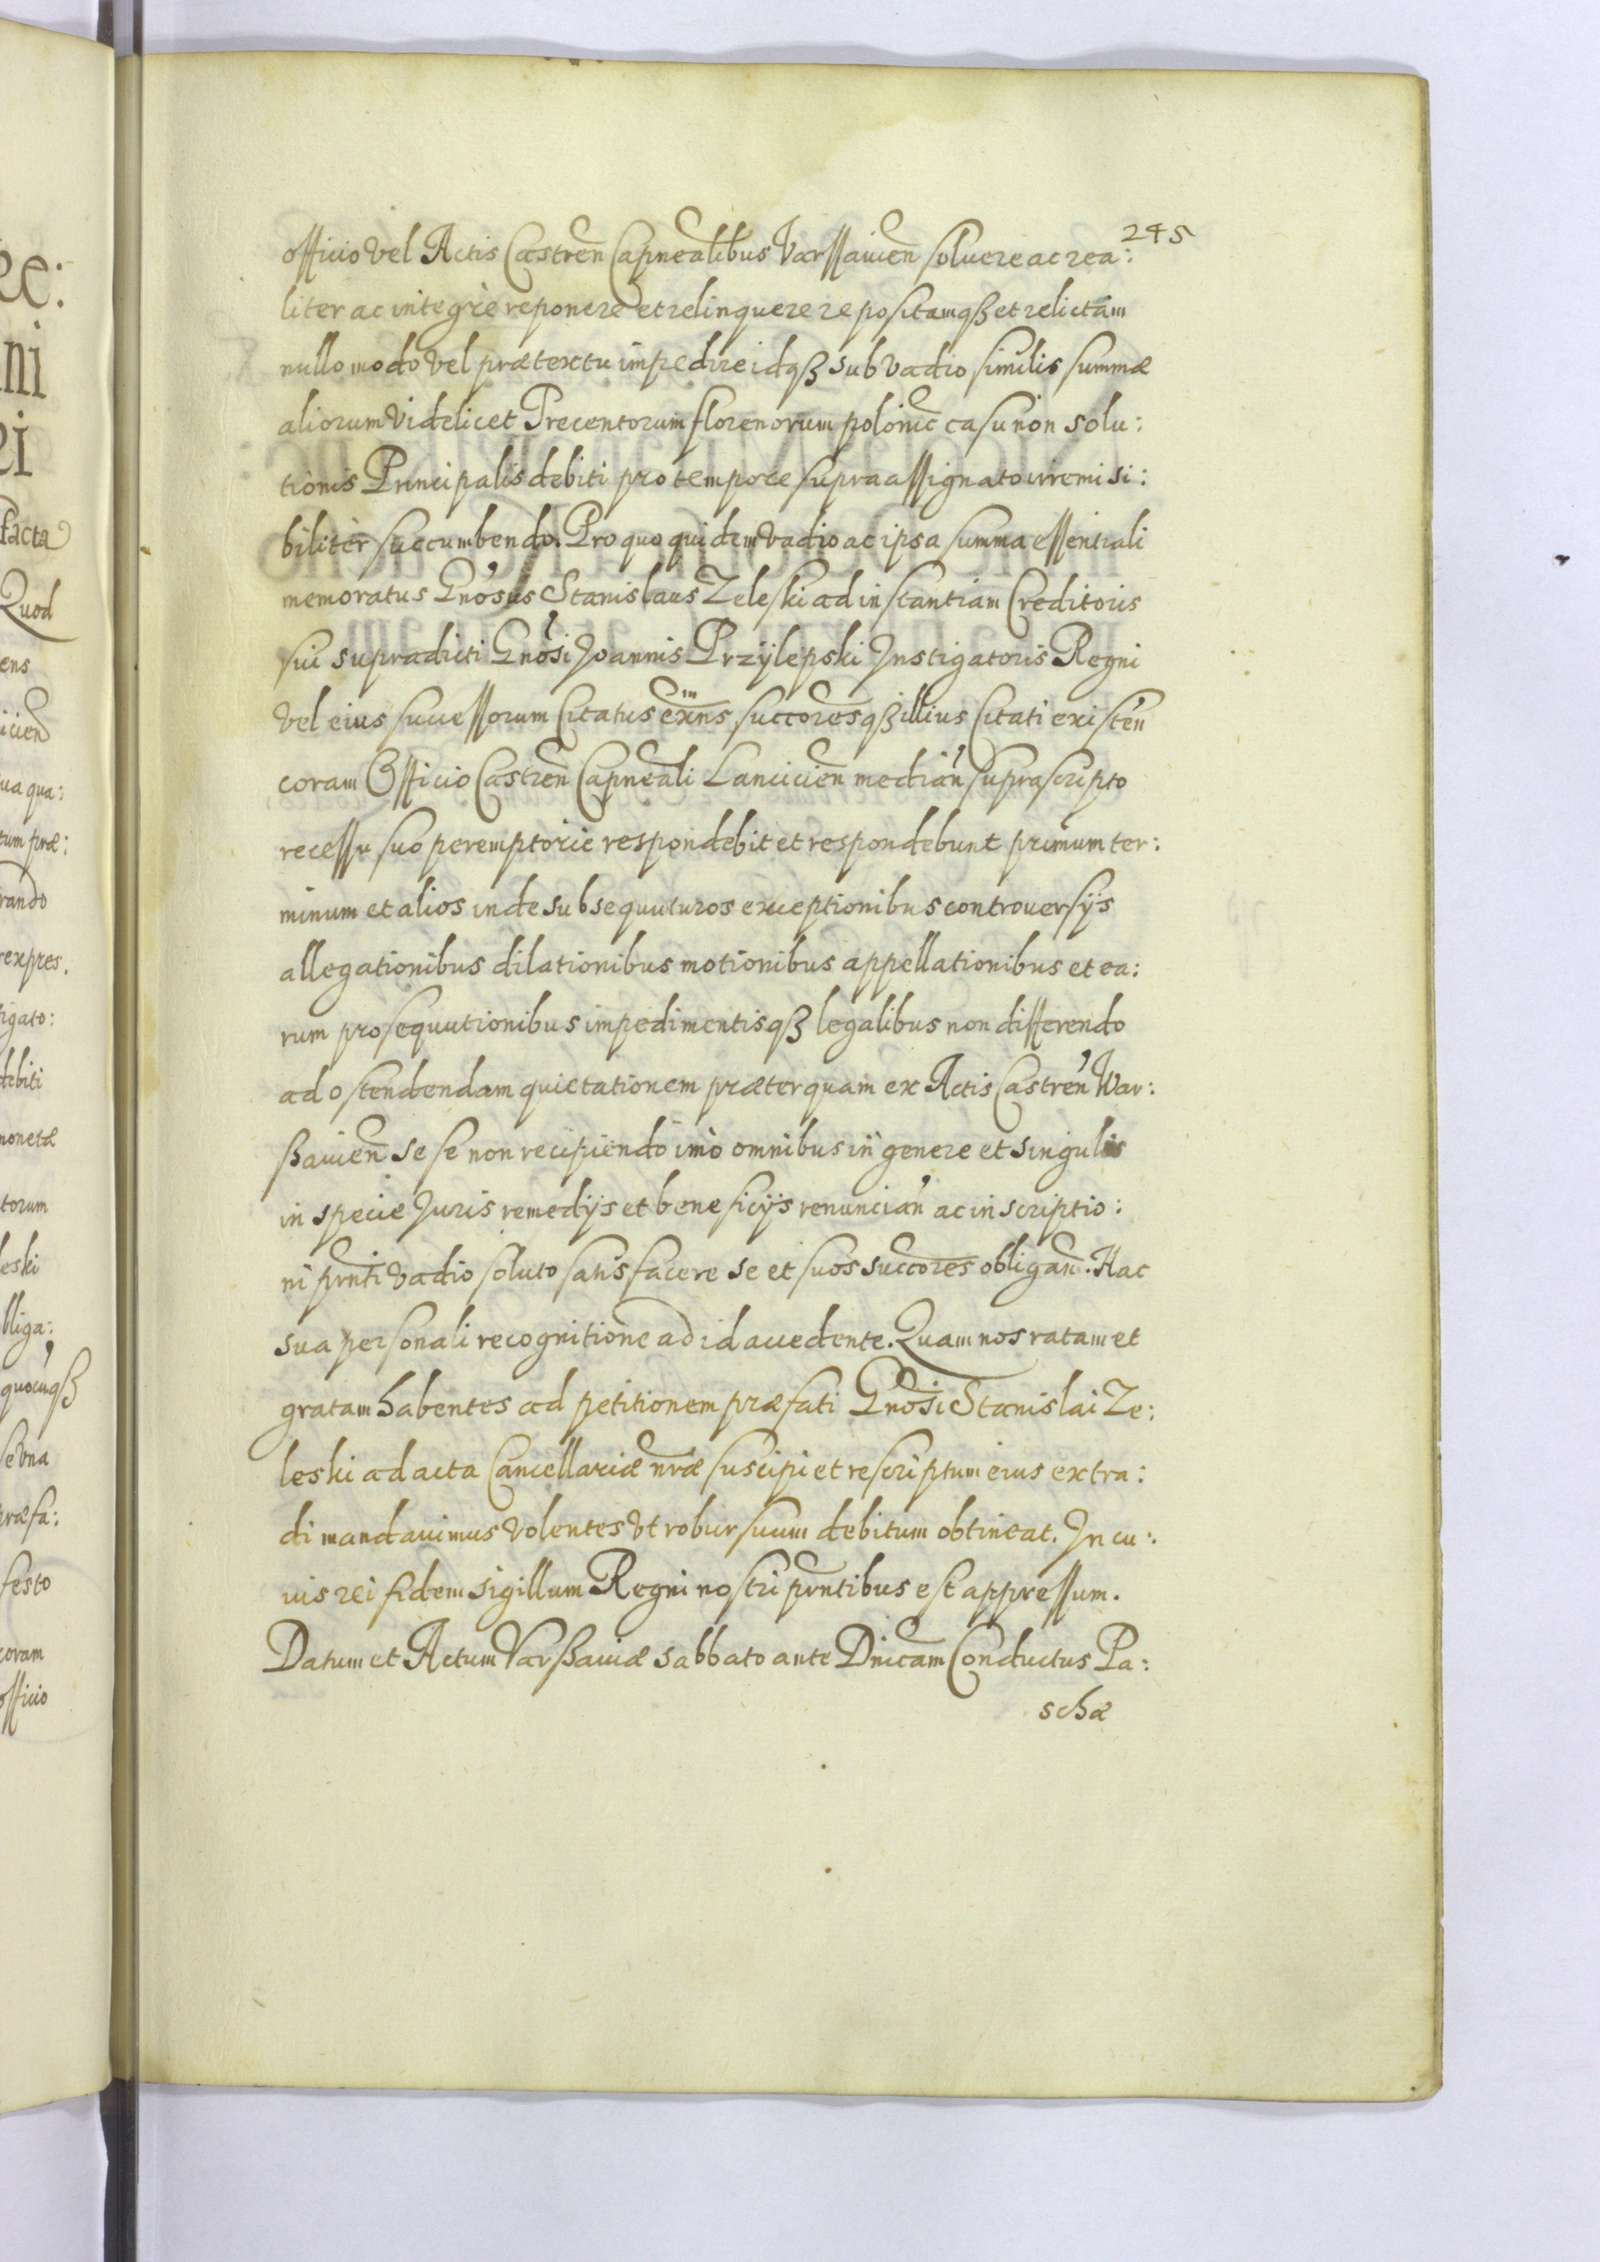 245
officio vel Actis Castren̄ Capnealibus Varssavien̄ soluere ac rea:
liter ac integrè reponere et relinquere repositamqß et relictam
nullo modo vel prætextu impedire idqß sub vadio similis summæ
aliorum videlicet Trecentorum florenorum polonic̄ casu non solu:
tionis Principalis debiti pro tempore supra assignato irremisi:
biliter succumbendo. Pro quo quidem vadio ac ipsa summa essentiali
memoratus Gnōsus Stanislaus Zeleski ad instantiam Creditoris
sui supradicti Gnōsi Joannis Przÿlepski Instigatoris Regni
vel eius successorum Citatus exn̄s succoresqß illius Citati existen̄
coram Officio Castren̄ Capneali Lancicien̄ median̄ suprascripto
recessu suo peremptorie respondebit et respondebunt primum ter:
minum et alios inde subsequuturos exceptionibus controuersÿs
allegationibus dilationibus motionibus appellationibus et ea:
rum prosequutionibus impedimentisqß legalibus non differendo
ad ostendendam quietationem præterquam ex Actis Castren̄ War:
ßavien̄ sese non recipiendo imò omnibus in genere et singulis
in specie Juris remedÿs et beneficÿs renuncian̄ ac inscriptio:
ni prn̄ti vadio soluto satisfacere se et suos succores obligan̄. Hac
sua personali recognitione ad id accedente. Quam nos ratam et
gratam habentes ad petitionem præfati Gnōsi Stanislai Ze:
leski ad acta Cancellariæ nr̄æ suscipi et rescriptum eius extra:
di mandauimus volentes vt robur suum debitum obtineat. In cu:
ius rei fidem sigillum Regni nostri prn̄tibus est appressum.
Datum et Actum Varßaviæ sabbato ante Dnicam Conductus Pa:
schæ
ni
ei
facta
Quod
ens
icien̄
ua qua:
tum præ:
rando
expres.
tigato:
debiti
monetæ
torum
leski
bliga:
quocuqß
se vna
ræfa:
festo
coram
officio